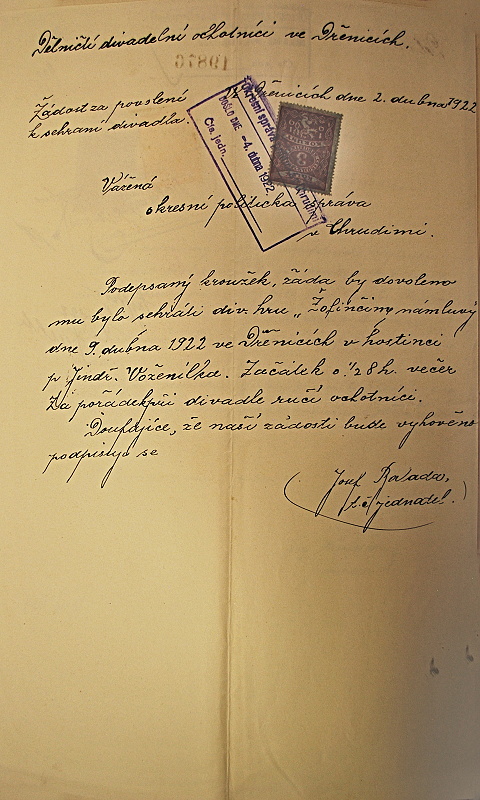 Dělničtí divadelní ochotníci ve Dřenicích.
Žádost za povolení
k sehrání divadla.
Dřenicích dne 2. dubna 1922
Okresní správa
DOŠLO DNE -4. dubna 1922
Čís. jedn.
3
Vážená
okresní politická správa
v Chrudimi.
Podepsaný kroužek, žádá by dovoleno
mu bylo sehráti div. hru „Žofinčiny námluvy
dne 9. dubna 1922 ve Dřenicích v hostinci
p. Jindř. Voženílka. Začátek o ½8 h. večer
Za pořádek při divadle ručí ochotníci.
Doufajíce, že naší žádosti bude vyhověno
podpisuje se
Josef
jednatel.